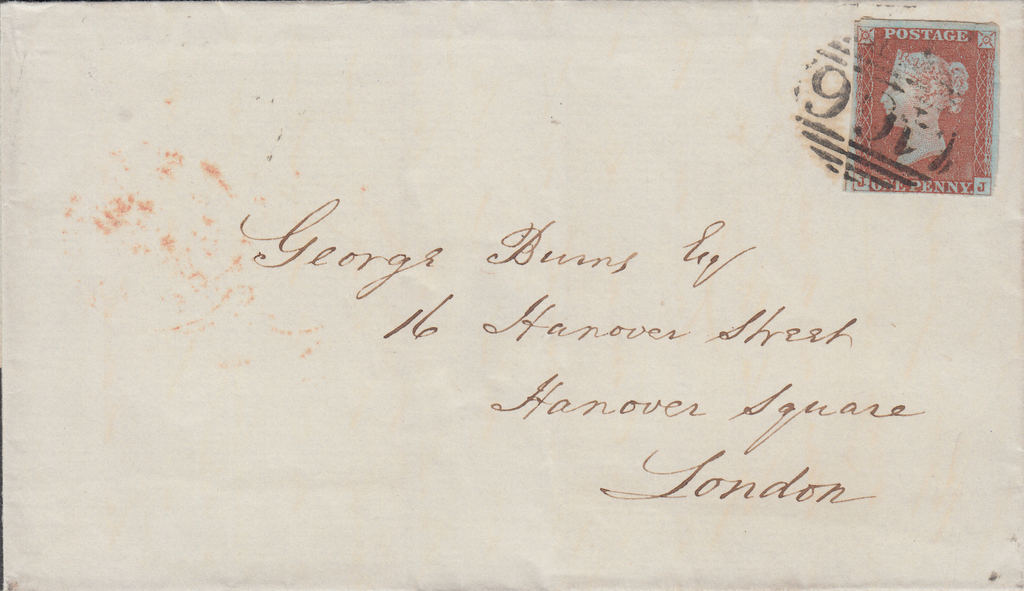 POSTAGE
ONE PENNY
J J
George Burns Esq
16 Hanover Street
Hanover Square
London